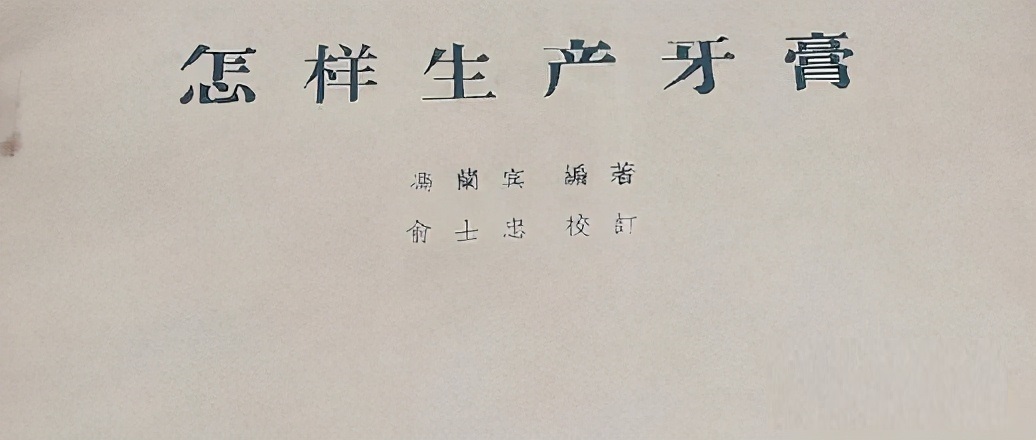 怎样生产牙膏
馮蘭宾 編著
俞士忠 校訂